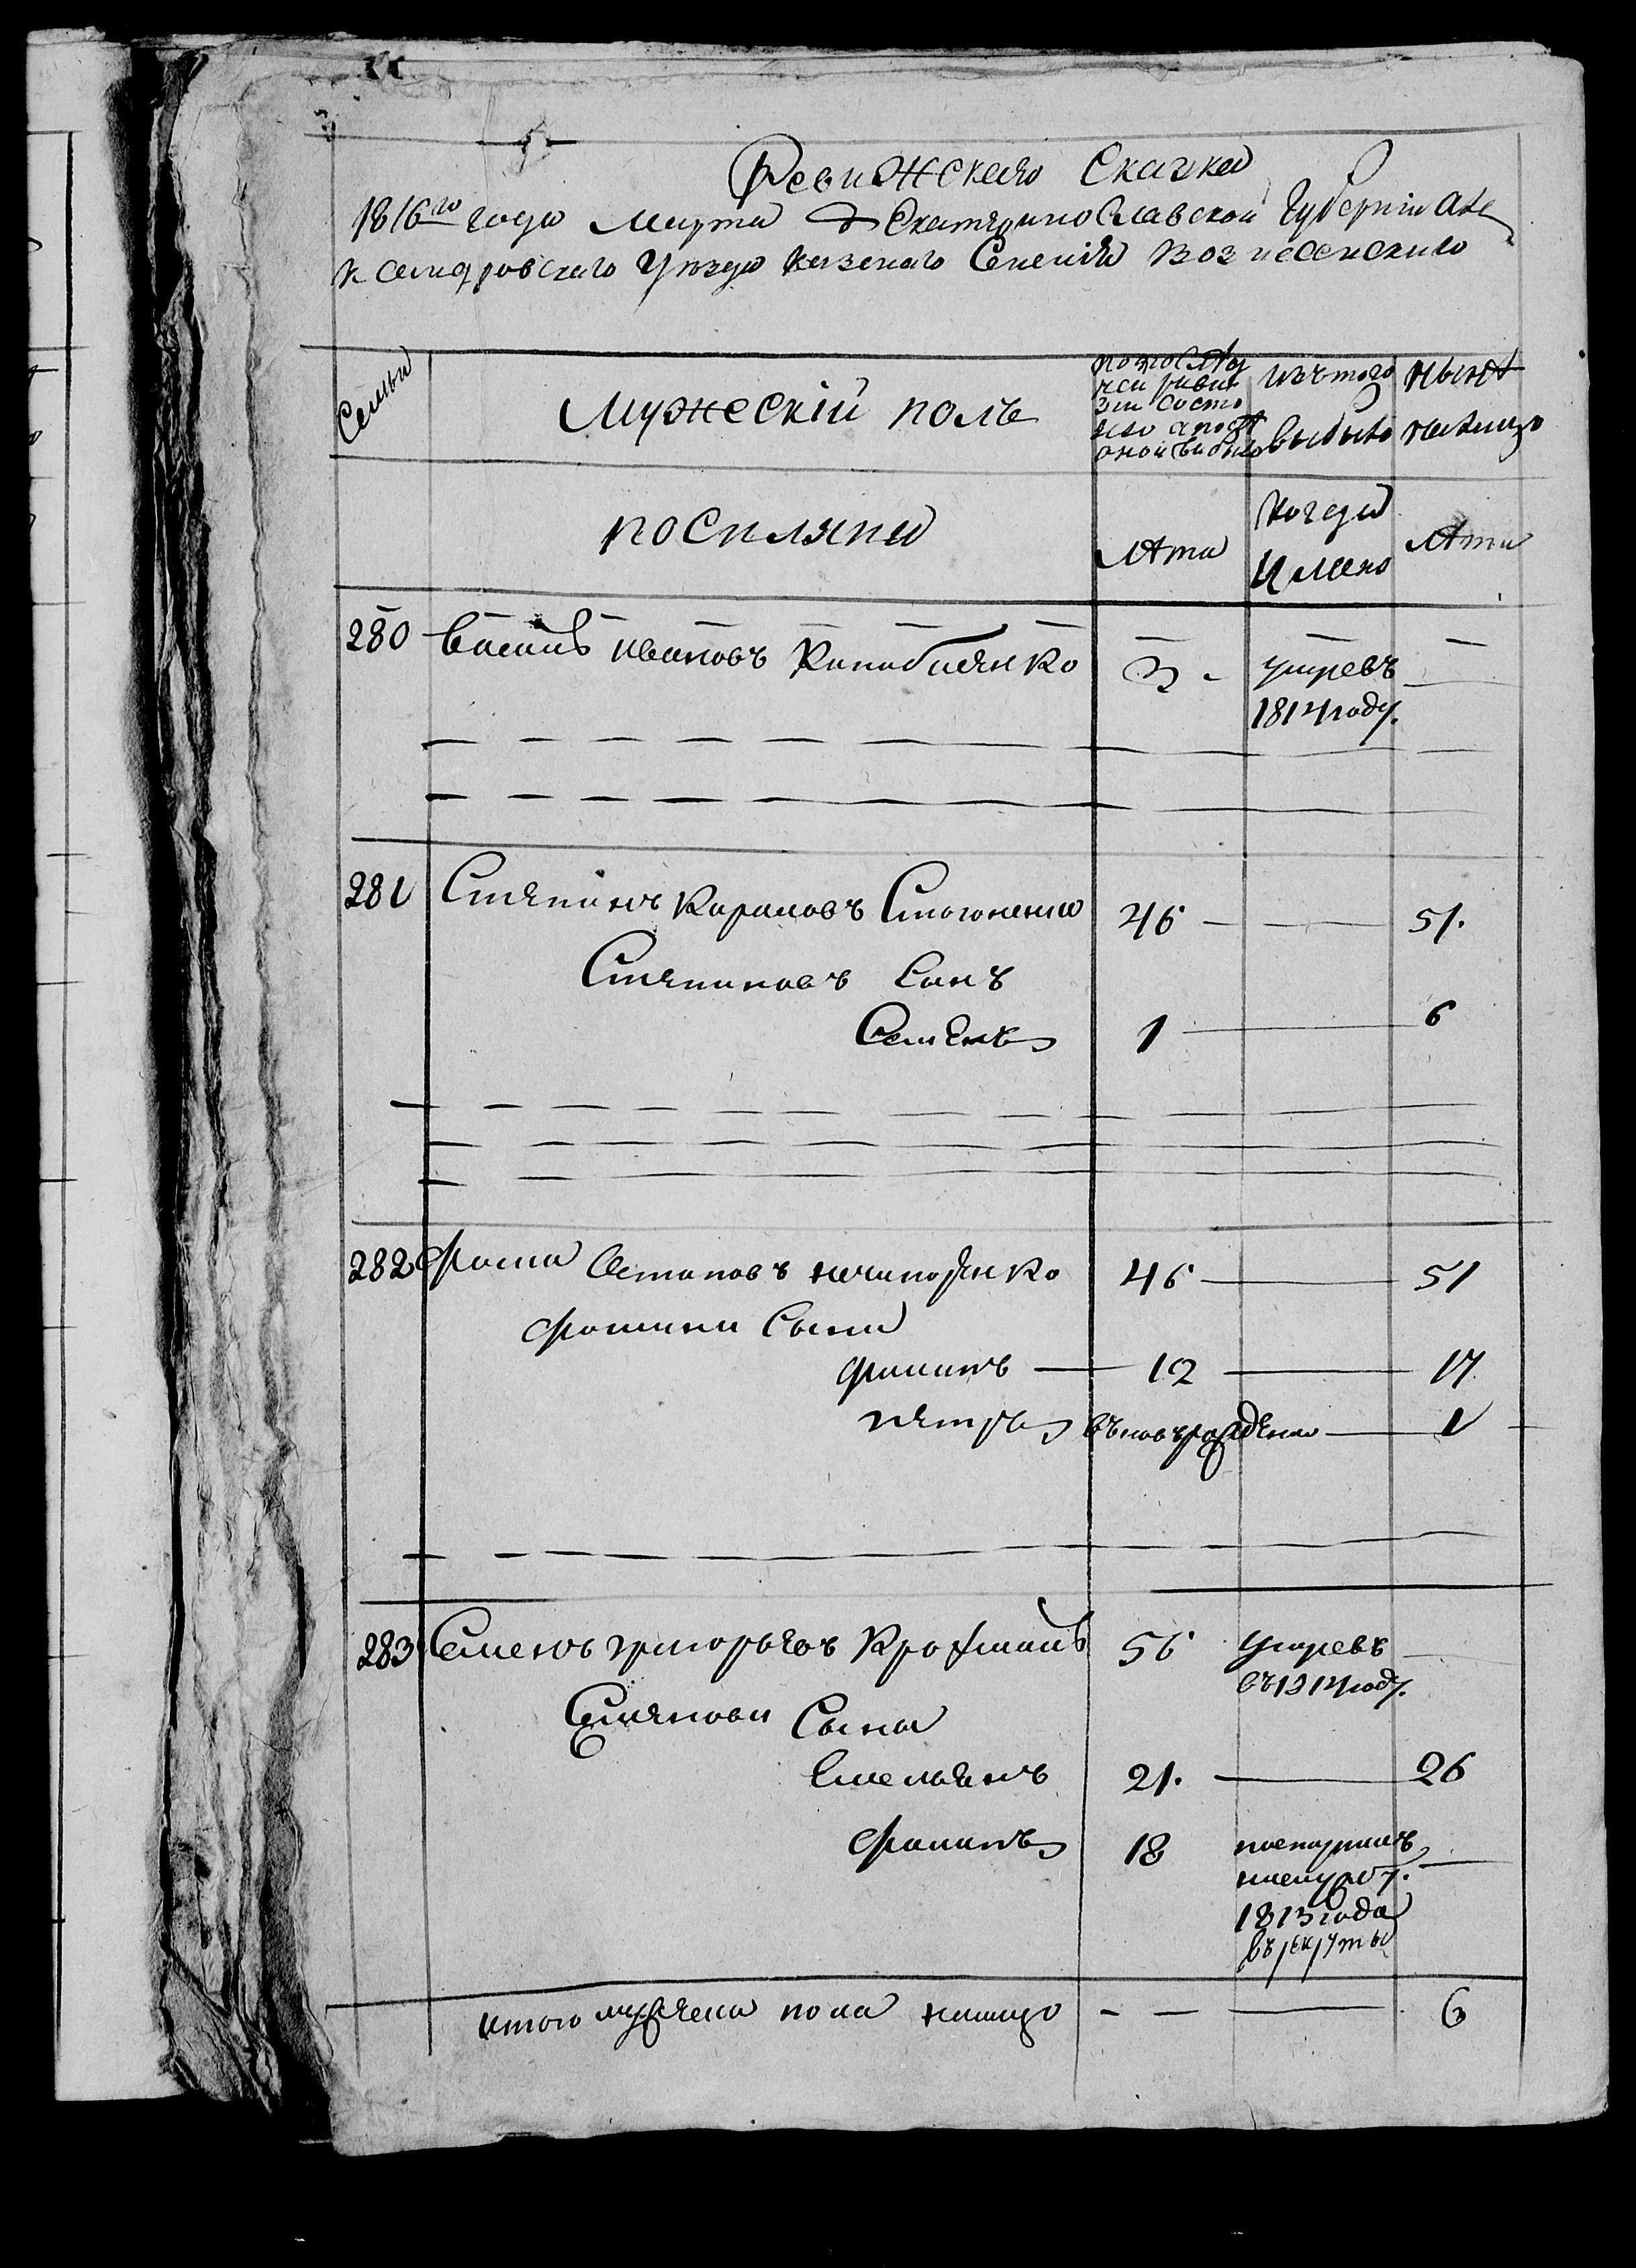 Ревижская Сказка
1816го года Марта Екатеринославской Губернии Але
ксандровского Уезда казеного Селения Вознесенского
Семьи
Мужескій полъ
по последней ревизии состояло а после оной прибыло
Изъ того выбыло
ныне налицо
поселяня
лета
когда имено
лета
280 Василь Ивановъ 3 умревъ
1814 году.
281 Степанъ Карповъ 46 51.
Степановъ Сынъ
Семенъ 1 6
282 Фома Остаповъ Ничипоренко 46 51
Фомини Сыни
Филипъ 12 17
Петръ въновъ рожденъ 1
283 Семенъ Григорьевъ Крохмаль 56 Умревъ
въ 1814 году.
Семенови Сыны
Емельянъ 21. 26
Филипъ 18
1813 года
въ рекруты
итого мужеска пола налицо 6